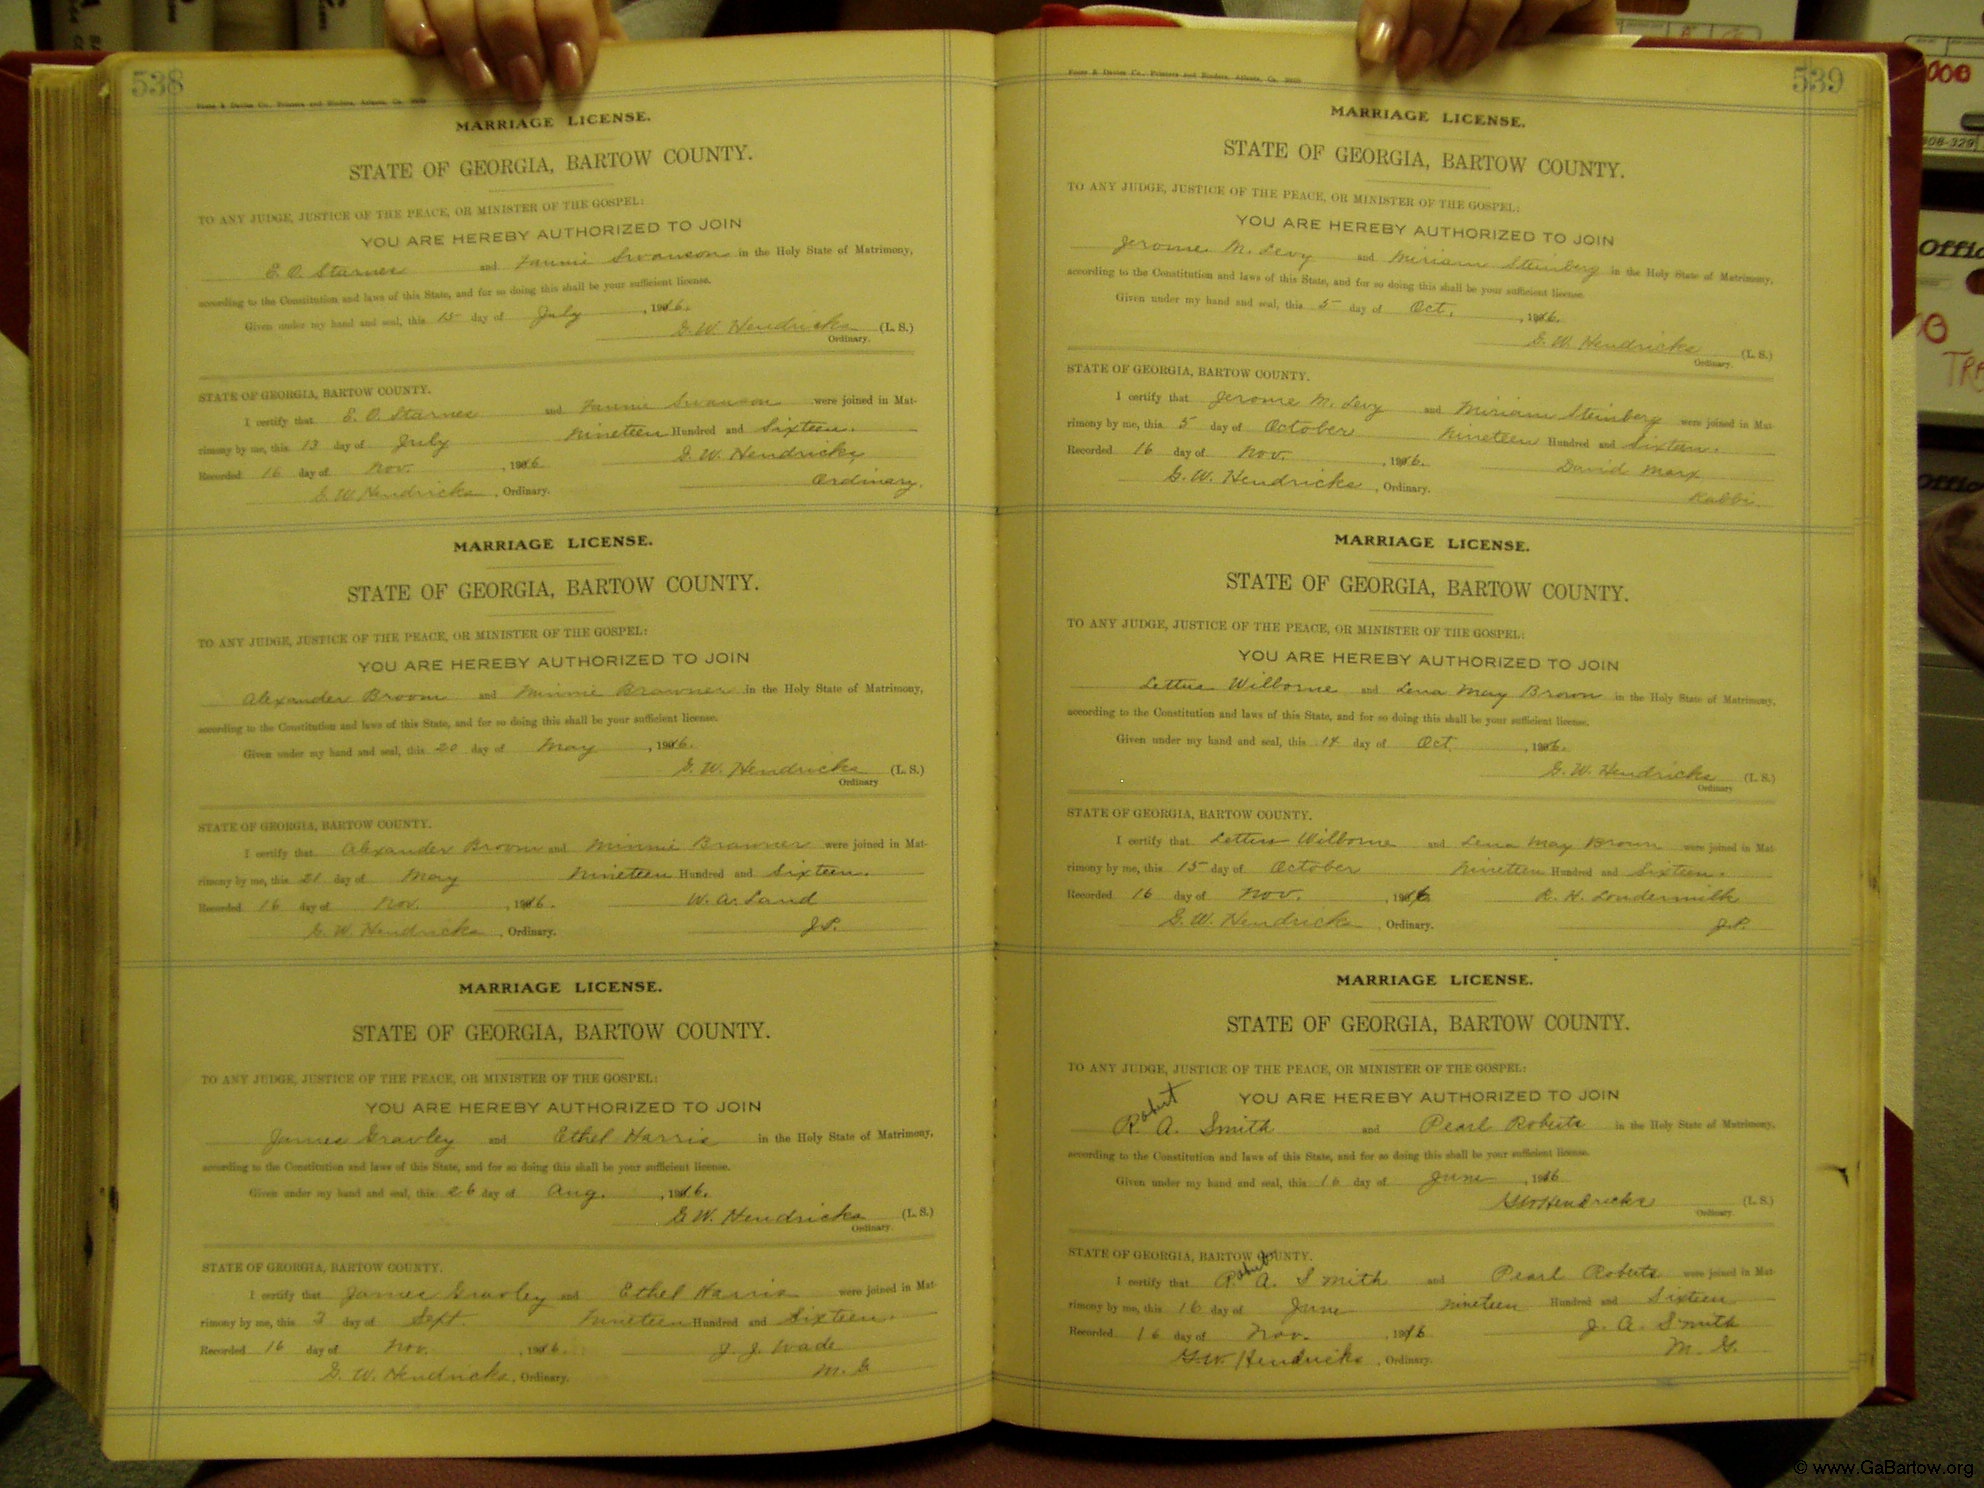 538
MARRIAGE LICENSE.
STATE OF GEORGIA, BARTOW COUNTY.
TO ANY JUDGE, JUSTICE OF THE PEACE, OR MINISTER OF THE GOSPEL:
YOU ARE HEREBY AUTHORIZED TO JOIN
E. O. Starnes and Fannie Swanson in the Holy State of Matrimony,
according to the Constitution and laws of this State, and for so doing this shall be your sufficient license.
Given under my hand and seal, this day of July, 1916.
G. W. Hendricks (L. S.)
Ordinary.
STATE OF GEORGIA, BARTOW COUNTY.
I certify that E. O. Starnes and Fannie Swanson were joined in Mat-
rimony by me, this 13 day of July Nineteen Hundred and Sixteen.
Recorded 16 day of Nov., 1916 G. W. Hendricks
G. W. Hendricks, Ordinary. Ordinary.
MARRIAGE LICENSE.
STATE OF GEORGIA, BARTOW COUNTY.
TO ANY JUDGE, JUSTICE OF THE PEACE, OR MINISTER OF THE GOSPEL:
YOU ARE HEREBY AUTHORIZED TO JOIN
Alexander Broom and Minnie Brawner in the Holy State of Matrimony,
according to the Constitution and laws of this State, and for so doing this shall be your sufficient license.
Given under my hand and seal, this 20 day of May, 1916.
G. W. Hendricks (L. S.)
Ordinary
STATE OF GEORGIA, BARTOW COUNTY.
I certify that Alexander Broom and Minnie Brawner were joined in Mat-
rimony by me, this 21 day of May Nineteen Hundred and Sixteen.
Recorded 16 day of Nov., 1916. W. A. Land
G. W. Hendricks, Ordinary. J.P.
MARRIAGE LICENSE.
STATE OF GEORGIA, BARTOW COUNTY.
TO ANY JUDGE, JUSTICE OF THE PEACE, OR MINISTER OF THE GOSPEL:
YOU ARE HEREBY AUTHORIZED TO JOIN
James Gravley and Ethel Harris in the Holy State of Matrimony,
according to the Constitution and laws of this State, and for so doing this shall be your sufficient license.
Given under my hand and seal, this 26 day of Aug., 1916.
G. W. Hendricks (L. S.)
Ordinary.
STATE OF GEORGIA, BARTOW COUNTY.
I certify that James Gravley and Ethel Harris were joined in Mat-
rimony by me, this day of Sept. Nineteen Hundred and Sixteen.
Recorded 16 day of Nov., 1916. J. J. Wade
G. W. Hendricks, Ordinary. M. G.
Foote & Davies Co., Printers and Binders, Atlanta, Ga.
539
MARRIAGE LICENSE.
STATE OF GEORGIA, BARTOW COUNTY.
TO ANY JUDGE, JUSTICE OF THE PEACE, OR MINISTER OF THE GOSPEL:
YOU ARE HEREBY AUTHORIZED TO JOIN
Jerome M. Levy and Miriam Steinberg in the Holy State of Matrimony,
according to the Constitution and laws of this State, and for so doing this shall be your sufficient license.
Given under my hand and seal, this 5 day of Oct., 1916.
G. W. Hendricks (L. S.)
Ordinary.
STATE OF GEORGIA, BARTOW COUNTY.
I certify that Jerome M. Levy and Miriam Steinberg were joined in Mat-
rimony by me, this 5 day of October Nineteen Hundred and Sixteen.
Recorded 16 day of Nov., 1916. David Marx
G. W. Hendricks, Ordinary. Rabbi
MARRIAGE LICENSE.
STATE OF GEORGIA, BARTOW COUNTY.
TO ANY JUDGE, JUSTICE OF THE PEACE, OR MINISTER OF THE GOSPEL:
YOU ARE HEREBY AUTHORIZED TO JOIN
Wilborne and Lena May Brown in the Holy State of Matrimony,
according to the Constitution and laws of this State, and for so doing this shall be your sufficient license.
Given under my hand and seal, this 14 day of Oct, 1916.
G. W. Hendricks (L. S.)
Ordinary
STATE OF GEORGIA, BARTOW COUNTY.
I certify that Wilborne and Lena May Brown were joined in Mat-
rimony by me, this 15 day of October Nineteen Hundred and Sixteen.
Recorded 16 day of Nov., 1916. R. H. Loudermilk
G. W. Hendricks, Ordinary. J.P.
MARRIAGE LICENSE.
STATE OF GEORGIA, BARTOW COUNTY.
TO ANY JUDGE, JUSTICE OF THE PEACE, OR MINISTER OF THE GOSPEL:
YOU ARE HEREBY AUTHORIZED TO JOIN
Robert A. Smith and Pearl Roberts in the Holy State of Matrimony,
according to the Constitution and laws of this State, and for so doing this shall be your sufficient license.
Given under my hand and seal, this 16 day of June, 1916
GW Hendricks (L. S.)
Ordinary.
STATE OF GEORGIA, BARTOW COUNTY.
I certify that Robert A. Smith and Pearl Roberts were joined in Mat-
rimony by me, this 16 day of June Nineteen Hundred and Sixteen
Recorded 16 day of Nov., 1916 J. A. Smith
GW Hendricks, Ordinary. M. G.
© www.GaBartow.org